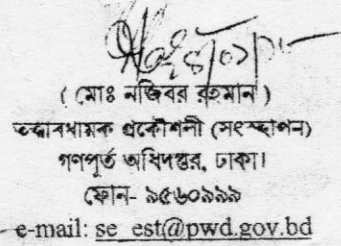 ( মোঃ নজিবর রহমান )
তত্ত্বাবধায়ক প্রকৌশলী (সংস্থাপন)
গণপূর্ত অধিদপ্তর, ঢাকা।
ফোন- ৯৫৬০৯৯৯
e-mail: se_est@pwd.gov.bd